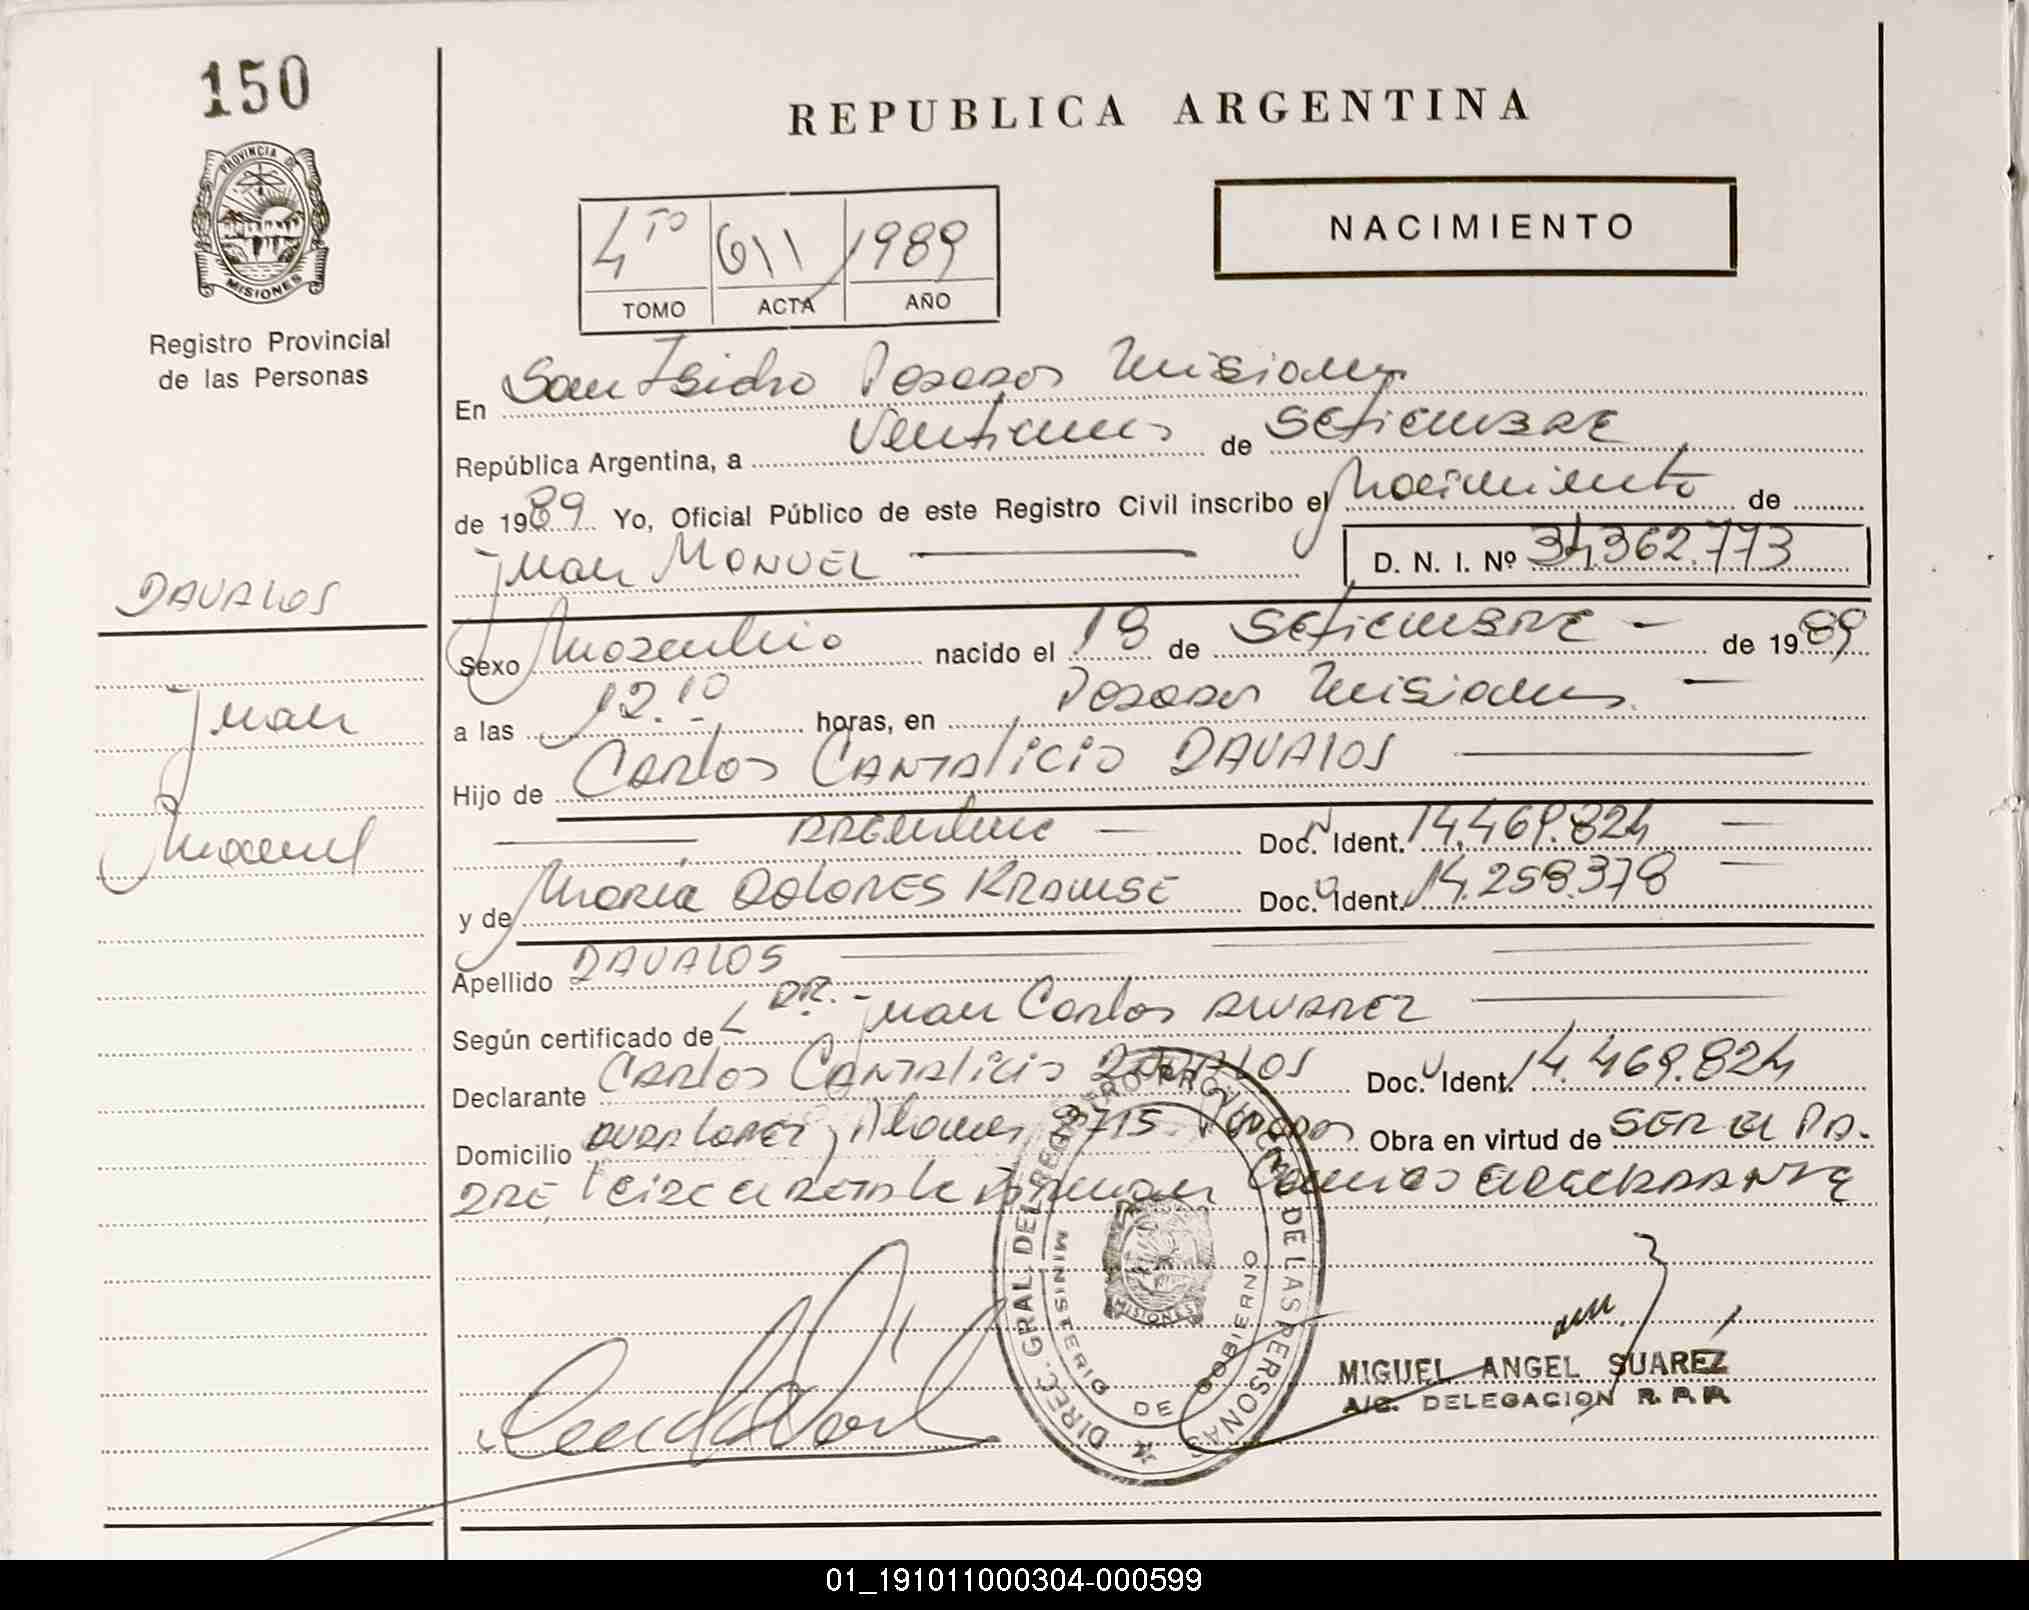 150
PROVINCIA DE
MISIONES
Registro Provincial
de las Personas
REPUBLICA ARGENTINA
NACIMIENTO
4to 611 1989
TOMO ACTA AÑO
En San Isidro Posadas Misiones
República Argentina, a de Setiembre
de 1989 Yo, Oficial Público de este Registro Civil inscribo el Nacimiento de
Juan Manuel D. N. I. Nº 34.362.773
DAVALOS
Juan
Manuel
Sexo Masculino nacido el 18 de Setiembre - de 1989
a las 12.10 horas, en Posadas Misiones -
Hijo de Carlos Cantalicio DAVALOS
Argentino - Doc. Ident. 14.469.824 -
y de María Dolores KRAUSE Doc. Ident. 14.258.378 -
Apellido DAVALOS
Según certificado de DR. Juan Carlos Alvarez
Declarante Carlos Cantalicio DAVALOS Doc. Ident. 14.469.824
Domicilio 3715 Posadas Obra en virtud de SER EL PA-
DRE,
DIREC. GRAL. DEL REGISTRO PROVINCIAL DE LAS PERSONAS
MINISTERIO DE GOBIERNO
MISIONES
MIGUEL ANGEL SUAREZ
A/C. DELEGACION R. P. P.
01_191011000304-000599